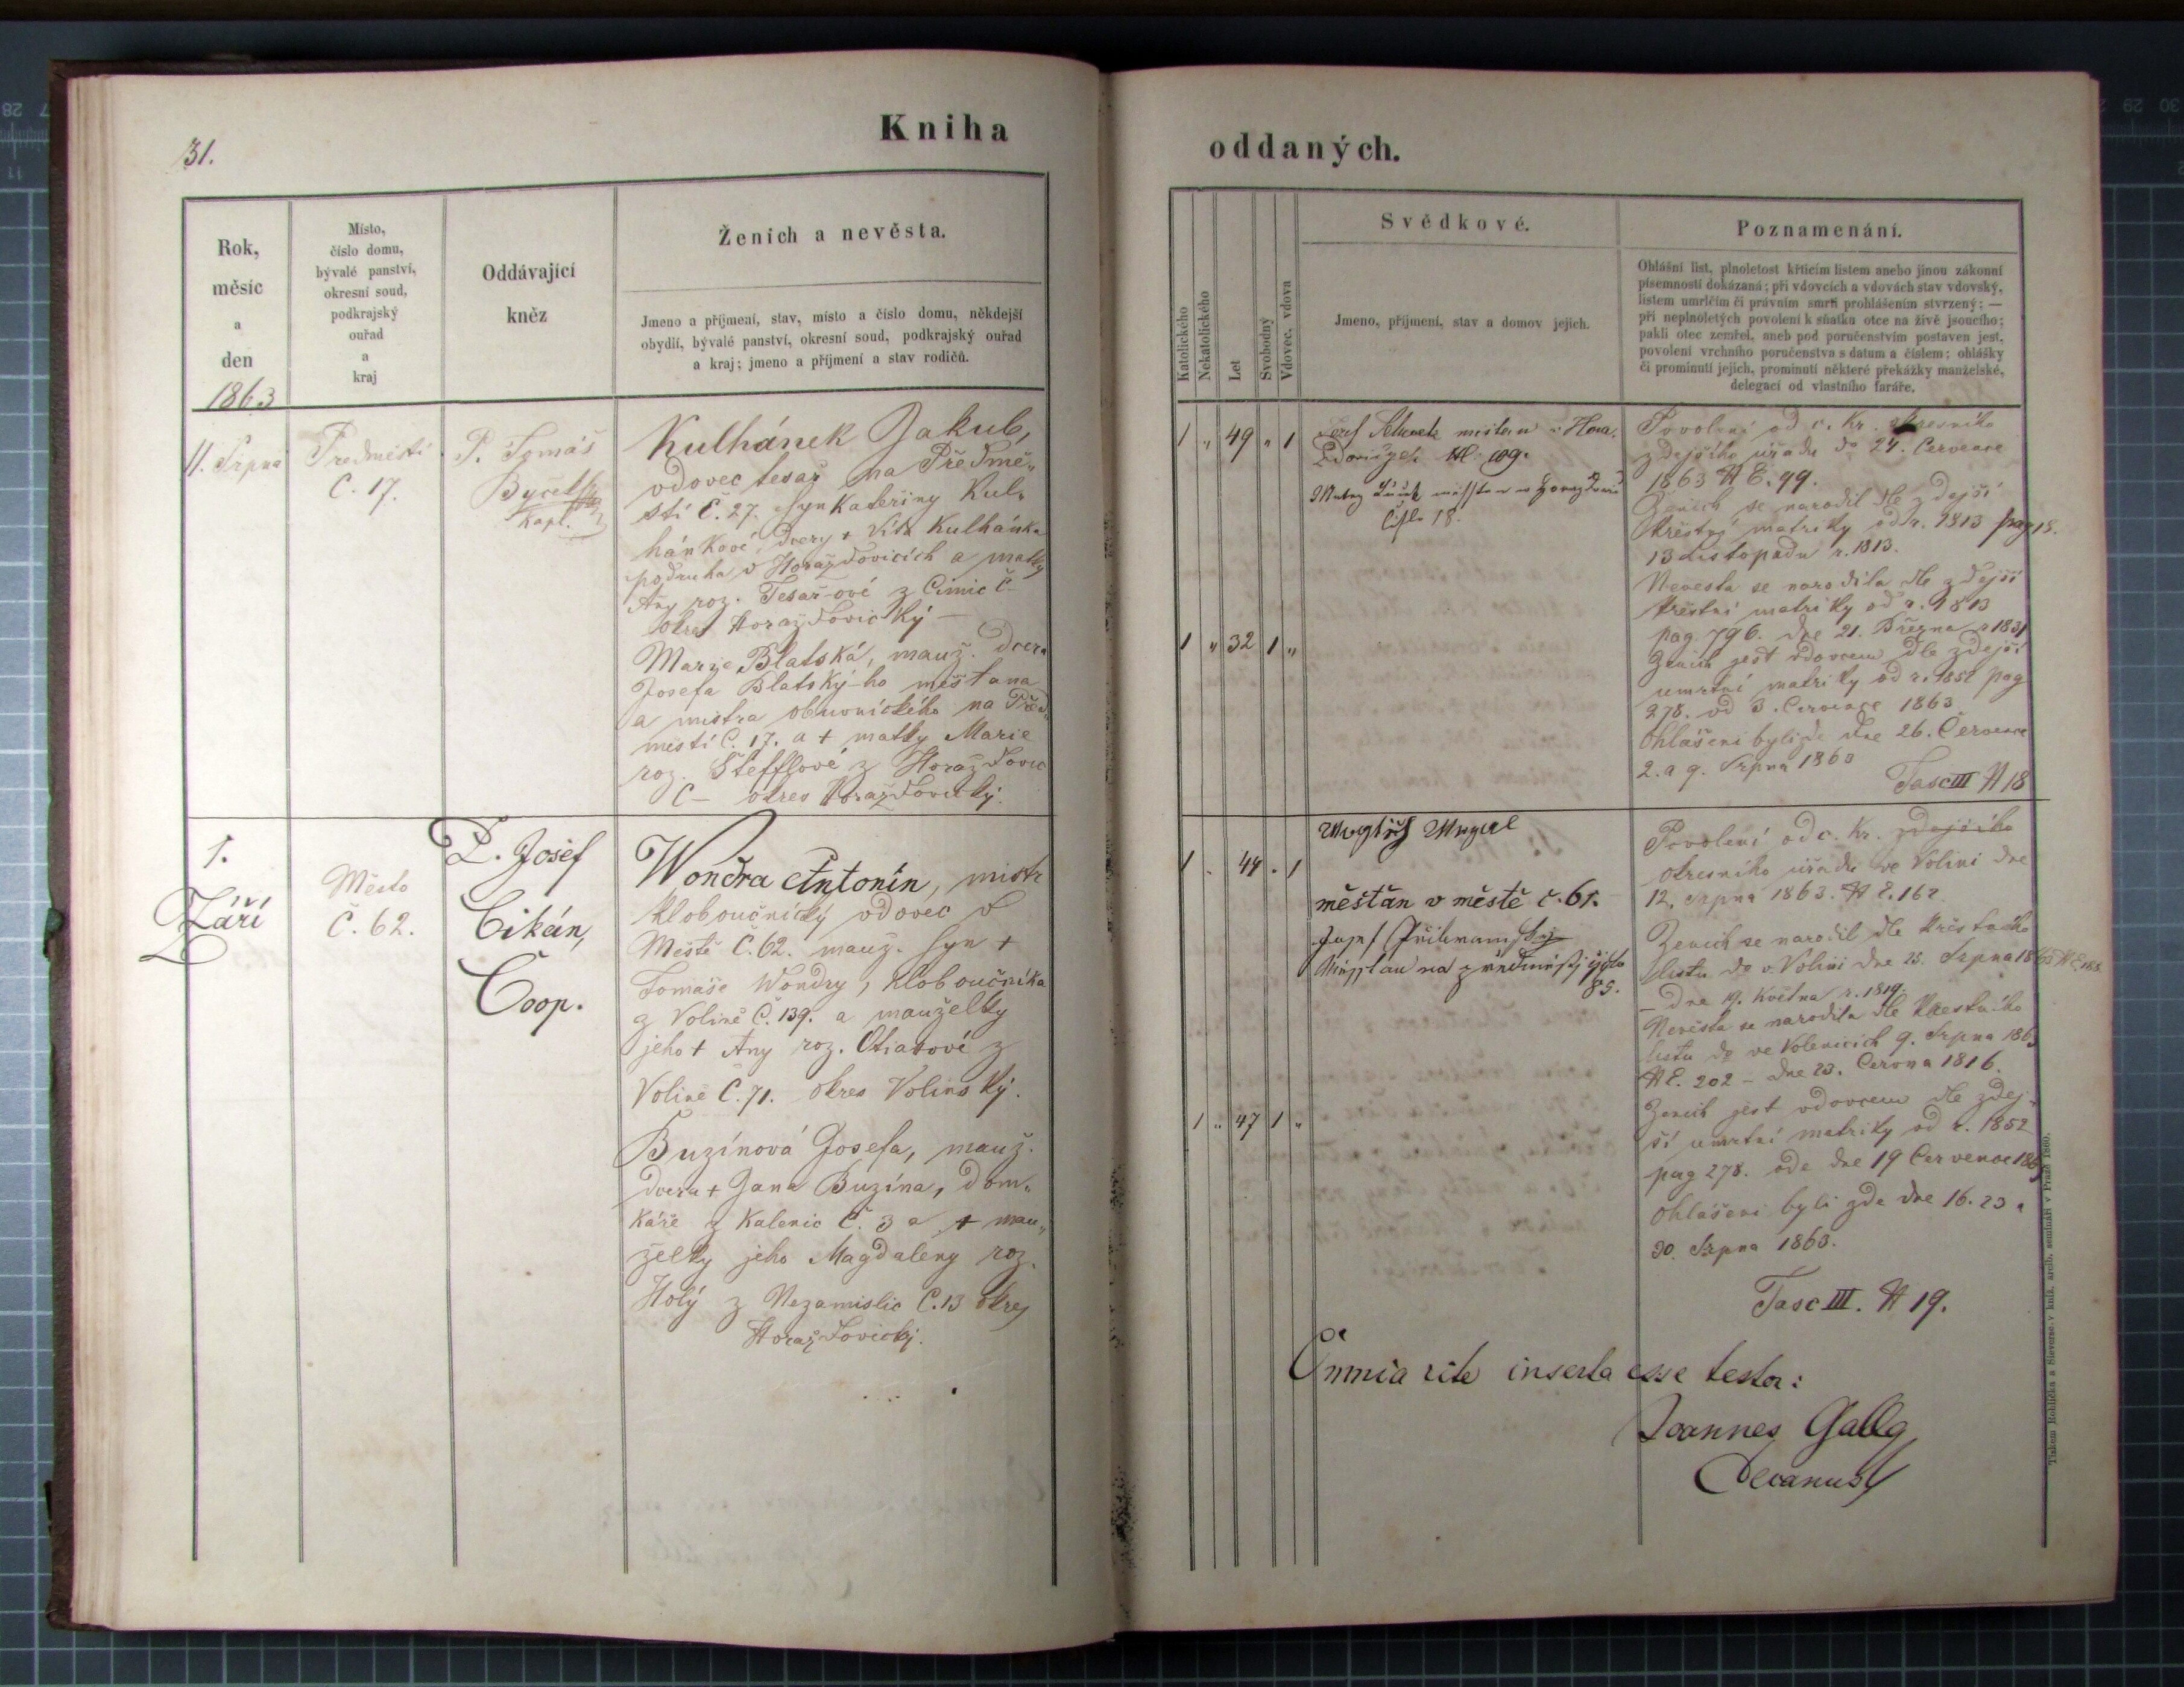 Kniha
oddaných.
31.
Rok,
měsíc
a
den
1863
Místo,
číslo domu,
bývalé panství,
okresní soud,
podkrajský
ouřad
a
kraj
Oddávající
kněz
Ženich a nevěsta.
Jmeno a příjmení, stav, místo a číslo domu, někdejší
obydlí, bývalé panství, okresní soud, podkrajský ouřad
a kraj; jmeno a příjmení a stav rodičů.
11. Srpna
Predměstí
Č. 17.
P. Tomáš
Kapl.
Kulhánek Jakub,
vdovec tesař na Předmě„
stí Č. 27. syn Kateřiny Kul„
hánkové, dcery + Víta Kulhánka
podruha v Horažďovicích a matky
Any roz. Tesař-ové z Čimic č–
okres Horažďovický –
Marie Blatská, mauž. dcera
Josefa Blatský-ho měšťana
a mistra obuvnického na Před„
městí Č. 17. a + matky Marie
roz. Štefflové z Horažďovic
Č – okres Horažďovický.
1.
Září
Město
Č. 62.
P. Josef
Cikán,
Coop.
Wondra Antonín, mistr
kloboučnický vdovec v
Městě Č. 62. mauž. syn +
Tomáše Wondry, kloboučníka
z Volině Č. 139. a mauželky
jeho + Any roz. z
Volině Č. 71. okres Volinský.
Buzínová Josefa, mauž.
dcera + Jana Buzína, dom„
káře z Kalenic Č. 3 a + mau„
želky jeho Magdaleny roz.
Holý z Nezamislic Č. 13 okres
Horažďovický.
Katolického
Nekatolického
Let
Svobodný
Vdovec, vdova
Svědkové.
Jmeno, příjmení, stav a domov jejich.
Poznamenání.
Ohlášní list, plnoletost křticím listem anebo jinou zákonní
písemností dokázaná; při vdovcích a vdovách stav vdovský,
listem umrlčím či právním smrti prohlášením stvrzený; —
při neplnoletých povolení k sňatku otce na živě jsoucího;
pakli otec zemřel, aneb pod poručenstvím postaven jest,
povolení vrchního poručenstva s datum a číslem; ohlášky
či prominutí jejich, prominutí některé překážky manželské,
delegací od vlastního faráře.
1 „ 49 „ 1
Josef
čislo 18.
1 „ 32 1 „
Povolení od c. kr. okresního
zdejšího úřadu do 24. Července
1863 N E. 99.
Ženich se narodil dle zdejší
křestní matriky od r. 1813 pag 18.
13 Listopadu r. 1813.
Nevesta se narodila dle zdejší
křestní matriky od r. 1813
pag. 796. dne 21. Března r 1831
Ženich jest vdovcem dle zdejší
umrtní matriky od r. 1852 pag
278. od 3. Července 1863.
Ohlášeni byli zde dne 26. Července
2. a 9. Srpna 1863
Fasc III N 18
1 . 44 . 1
měšťan v městě č. 61.
Josef
85.
1 „ 47 1 „
Povolení od c. kr. zdejšího
okresního úřadu ve Volini dne
12. Srpna 1863. N E. 162
Ženich se narodil dle křestního
listu do v. Volini dne 25. Srpna 1863
– dne 19. Května r. 1819.
Nevěsta se narodila dle křestního
listu do ve Volenicích 9. Srpna 1863
N E. 202 – dne 23. Června 1816.
Ženich jest vdovcem dle zdej„
ší umrtní matriky od r. 1852
pag 278. ode dne 19 Července 1863
Ohlášeni byli zde dne 16. 23 a
30. Srpna 1863.
Fasc III. N 19.
Omnia rite inserta esse testor:
Joannes
Decanus